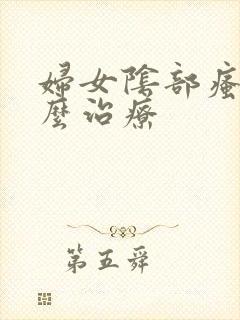 婦女陰部瘙
麼治療
第五舜